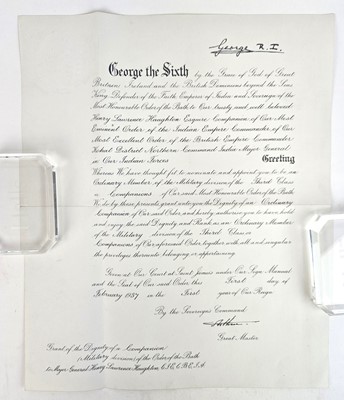 George R.I.
George the Sixth by the Grace of God of Great
Britain, Ireland and the British Dominions beyond the Seas
King, Defender of the Faith, Emperor of India and Sovereign of the
Most Honourable Order of the Bath to Our trusty and well beloved
Henry Lawrence Haughton Esquire Companion of Our Most
Eminent Order of the Indian Empire Commander of Our
Most Excellent Order of the British Empire Commander
Kohat District Northern Command India Major General
in Our Indian Forces Greeting
Whereas We have thought fit to nominate and appoint you to be an
Ordinary Member of the Military division of the Third Class
or Companions of Our said Most Honourable Order of the Bath
We do by these presents grant unto you the Dignity of an Ordinary
Companion of Our said Order, and hereby authorise you to have hold
and enjoy the said Dignity and Rank as an Ordinary Member
of the Military division of the Third Class or
Companions of Our aforesaid Order, together with all and singular
the privileges thereunto belonging or appertaining.
Given at Our Court at Saint James's under Our Sign Manual
and the Seal of Our said Order, this First day of
February 1937 in the First year of Our Reign.
By the Sovereign's Command.
Great Master
Grant of the Dignity of a Companion
(Military division) of the Order of the Bath
to Major General Henry Lawrence Haughton, C.I.E., C.B.E., I.A.